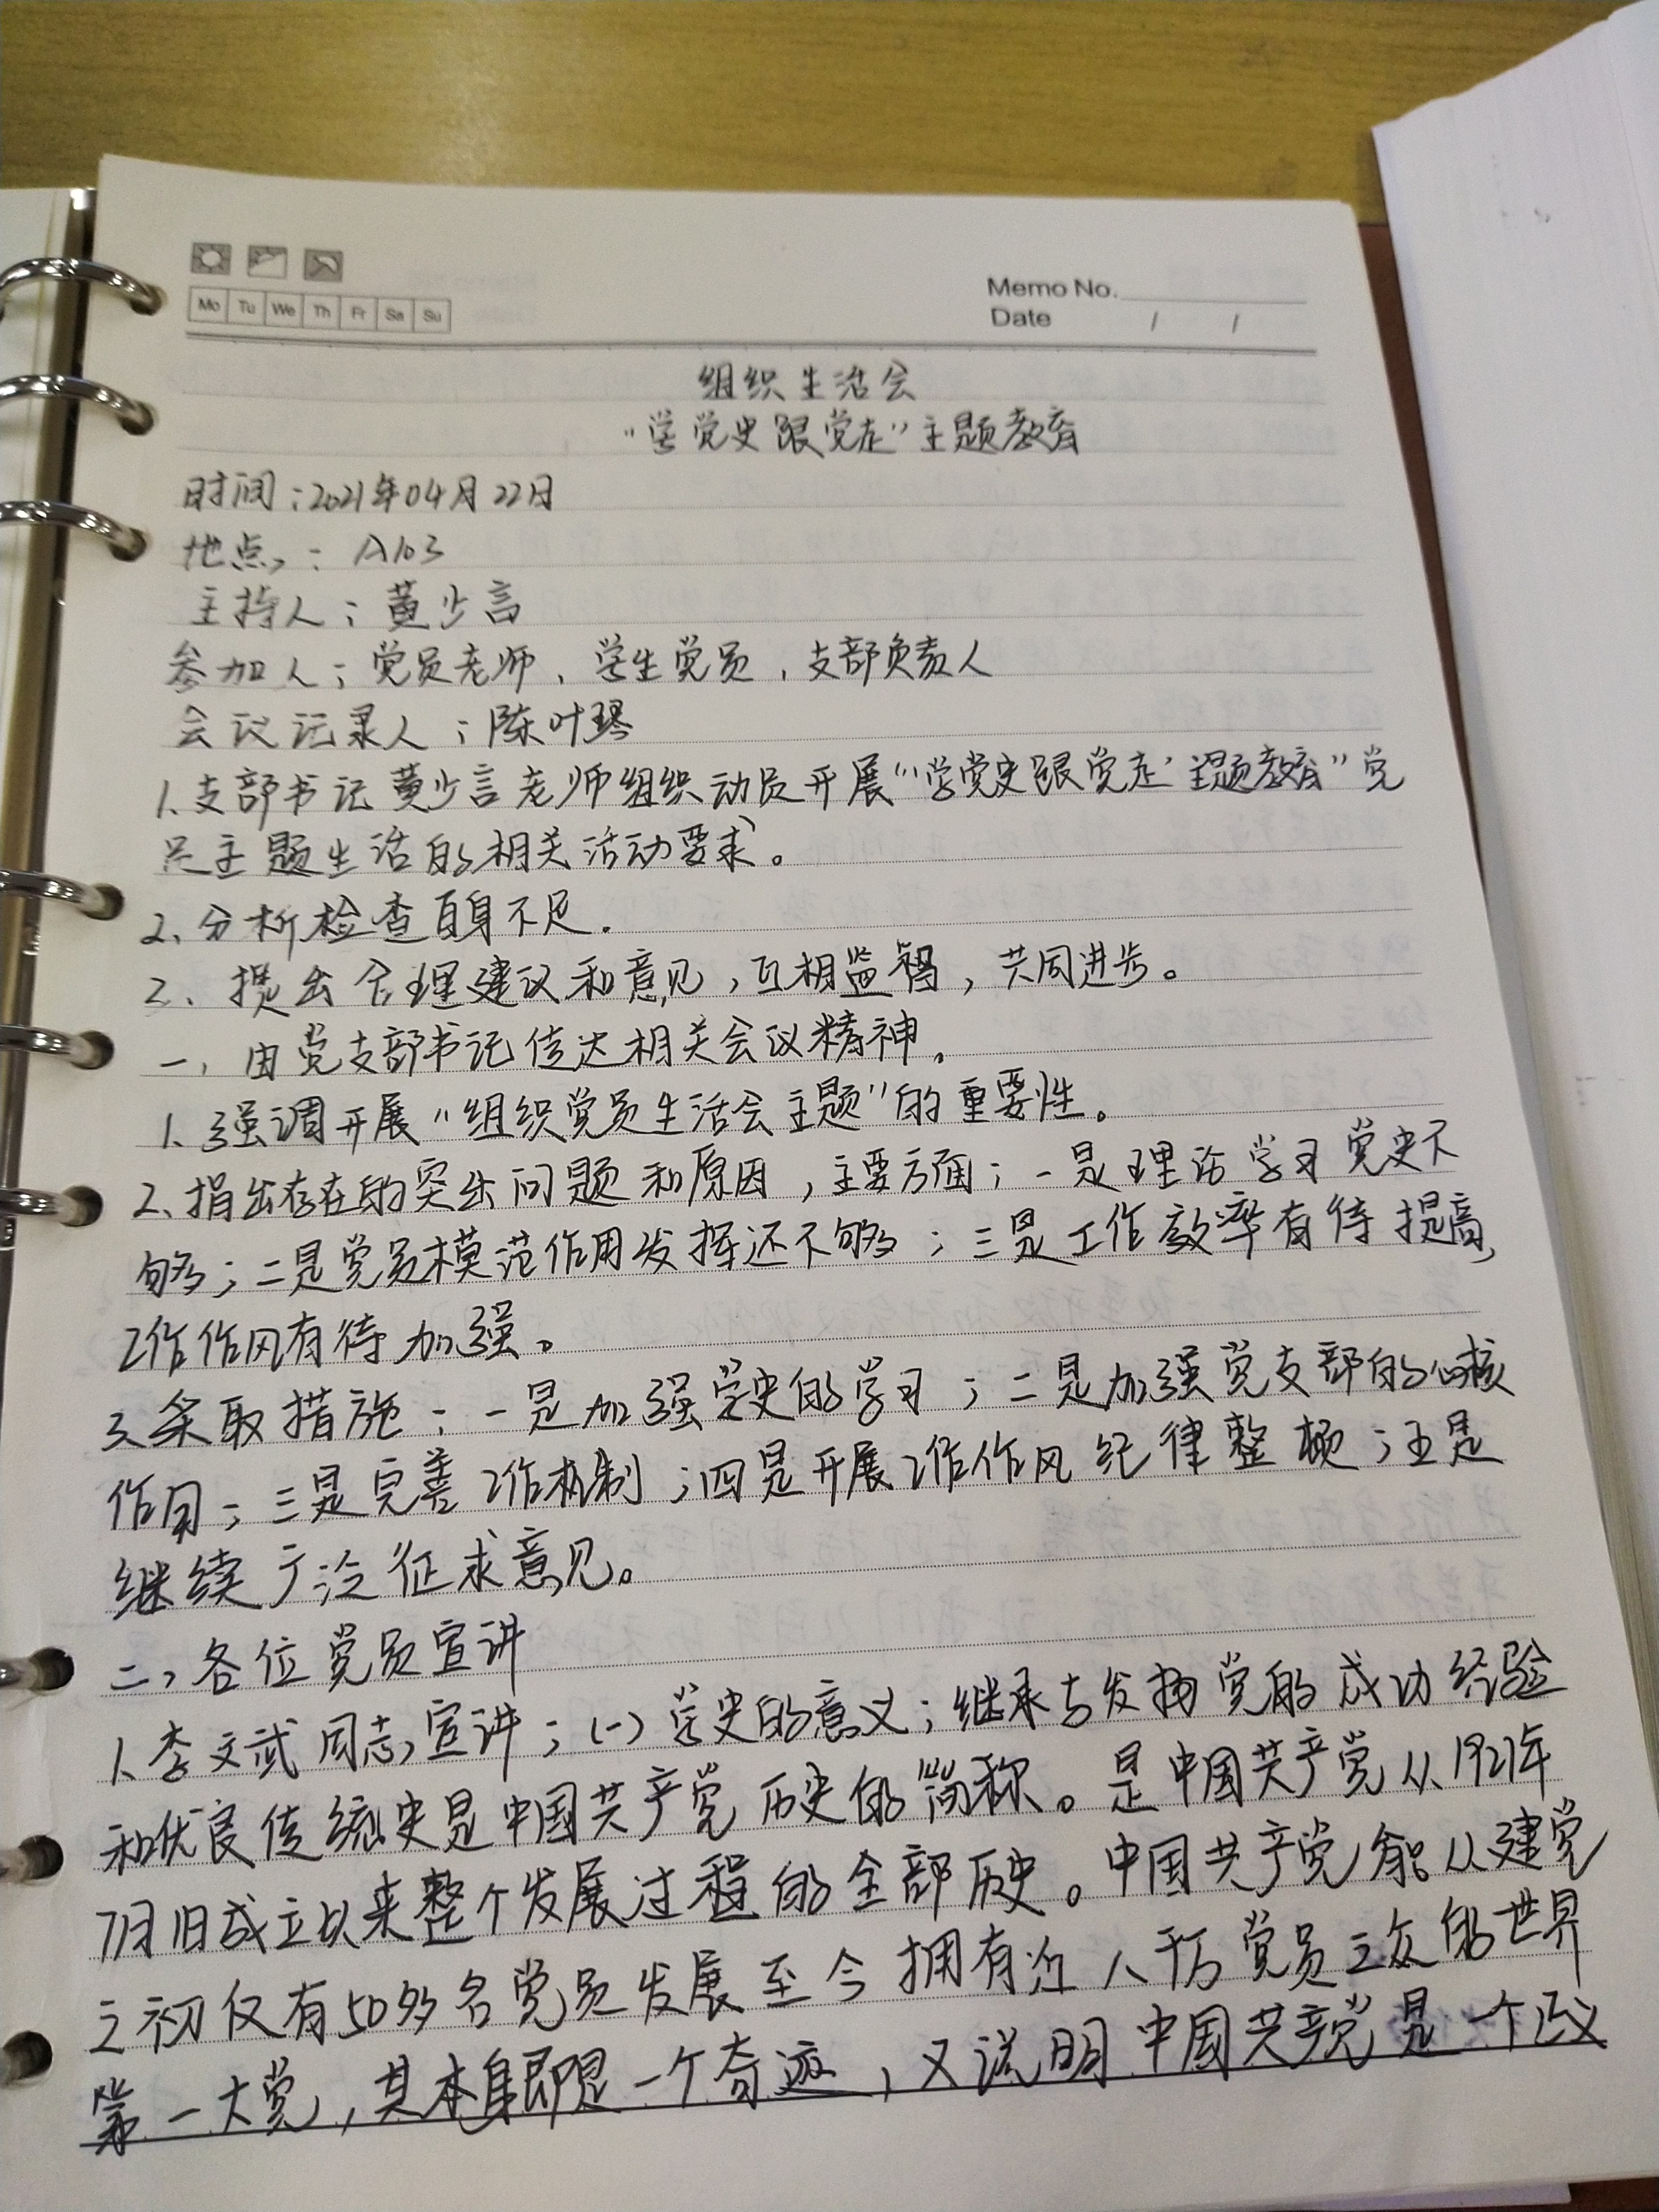 Mo Tu We Th Fr Sa Su
Memo No.
Date / /
组织生活会
“学党史跟党走”主题教育
时间：2021年04月22日
地点：A103
主持人：黄少言
参加人：党员老师、学生党员、支部负责人
会议记录人：陈叶琴
1、支部书记黄少言老师组织动员开展“‘学党史跟党走’主题教育”党
员主题生活的相关活动要求。
2、分析检查自身不足.
3、提出合理建议和意见，互相监督，共同进步。
一、由党支部书记传达相关会议精神。
1、强调开展“组织党员生活会主题”的重要性。
2、指出存在的突出问题和原因，主要方面：一是理论学习党史不
够；二是党员模范作用发挥还不够；三是工作效率有待提高，
工作作风有待加强。
3、采取措施：一是加强党史的学习；二是加强党支部的心核
作用；三是完善工作机制；四是开展工作作风纪律整顿；五是
继续广泛征求意见。
二、各位党员宣讲
1、李文武同志宣讲：(一)党史的意义：继承与发扬党的成功经验
和优良传统史是中国共产党历史的简称。是中国共产党从1921年
7月1日成立以来整个发展过程的全部历史。中国共产党能从建党
之初仅有50多名党员发展至今拥有近八千万党员之众的世界
第一大党，其本身即是一个奇迹，又说明中国共产党是一个正义